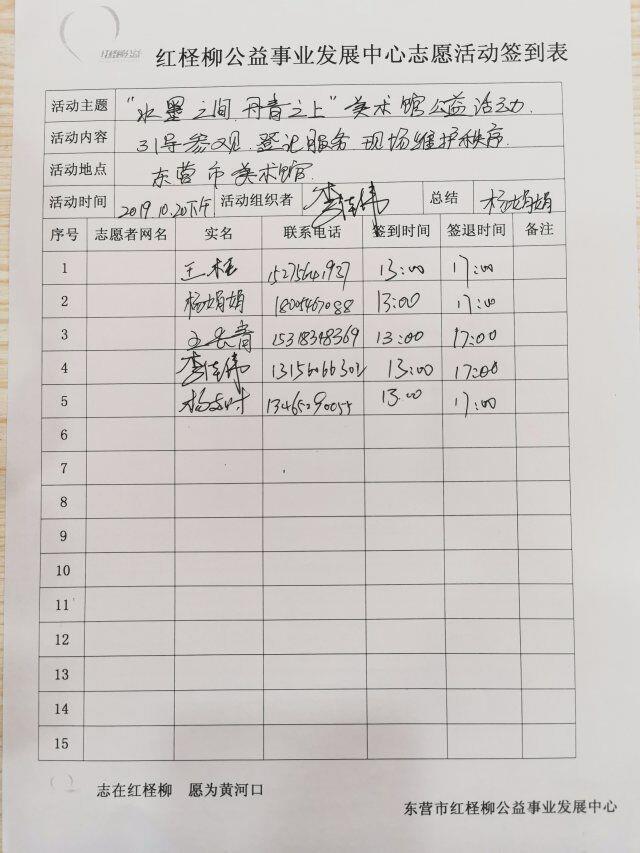 红柽柳公益
红柽柳公益事业发展中心志愿活动签到表
活动主题 "水墨之间 丹青之上"美术馆公益活动
活动内容 引导参观、登记服务、现场维护秩序
活动地点 东营市美术馆
活动时间 2019.10.20下午 活动组织者 李佳伟 总结 杨娟娟
序号 志愿者网名 实名 联系电话 签到时间 签退时间 备注
1 13:00 17:00
2 杨娟娟 18005467088 13:00 17:00
3 王长青 15318348369 13:00 17:00
4 李佳伟 13156066302 13:00 17:00
5 13:00 17:00
6
7
8
9
10
11
12
13
14
15
志在红柽柳 愿为黄河口
东营市红柽柳公益事业发展中心